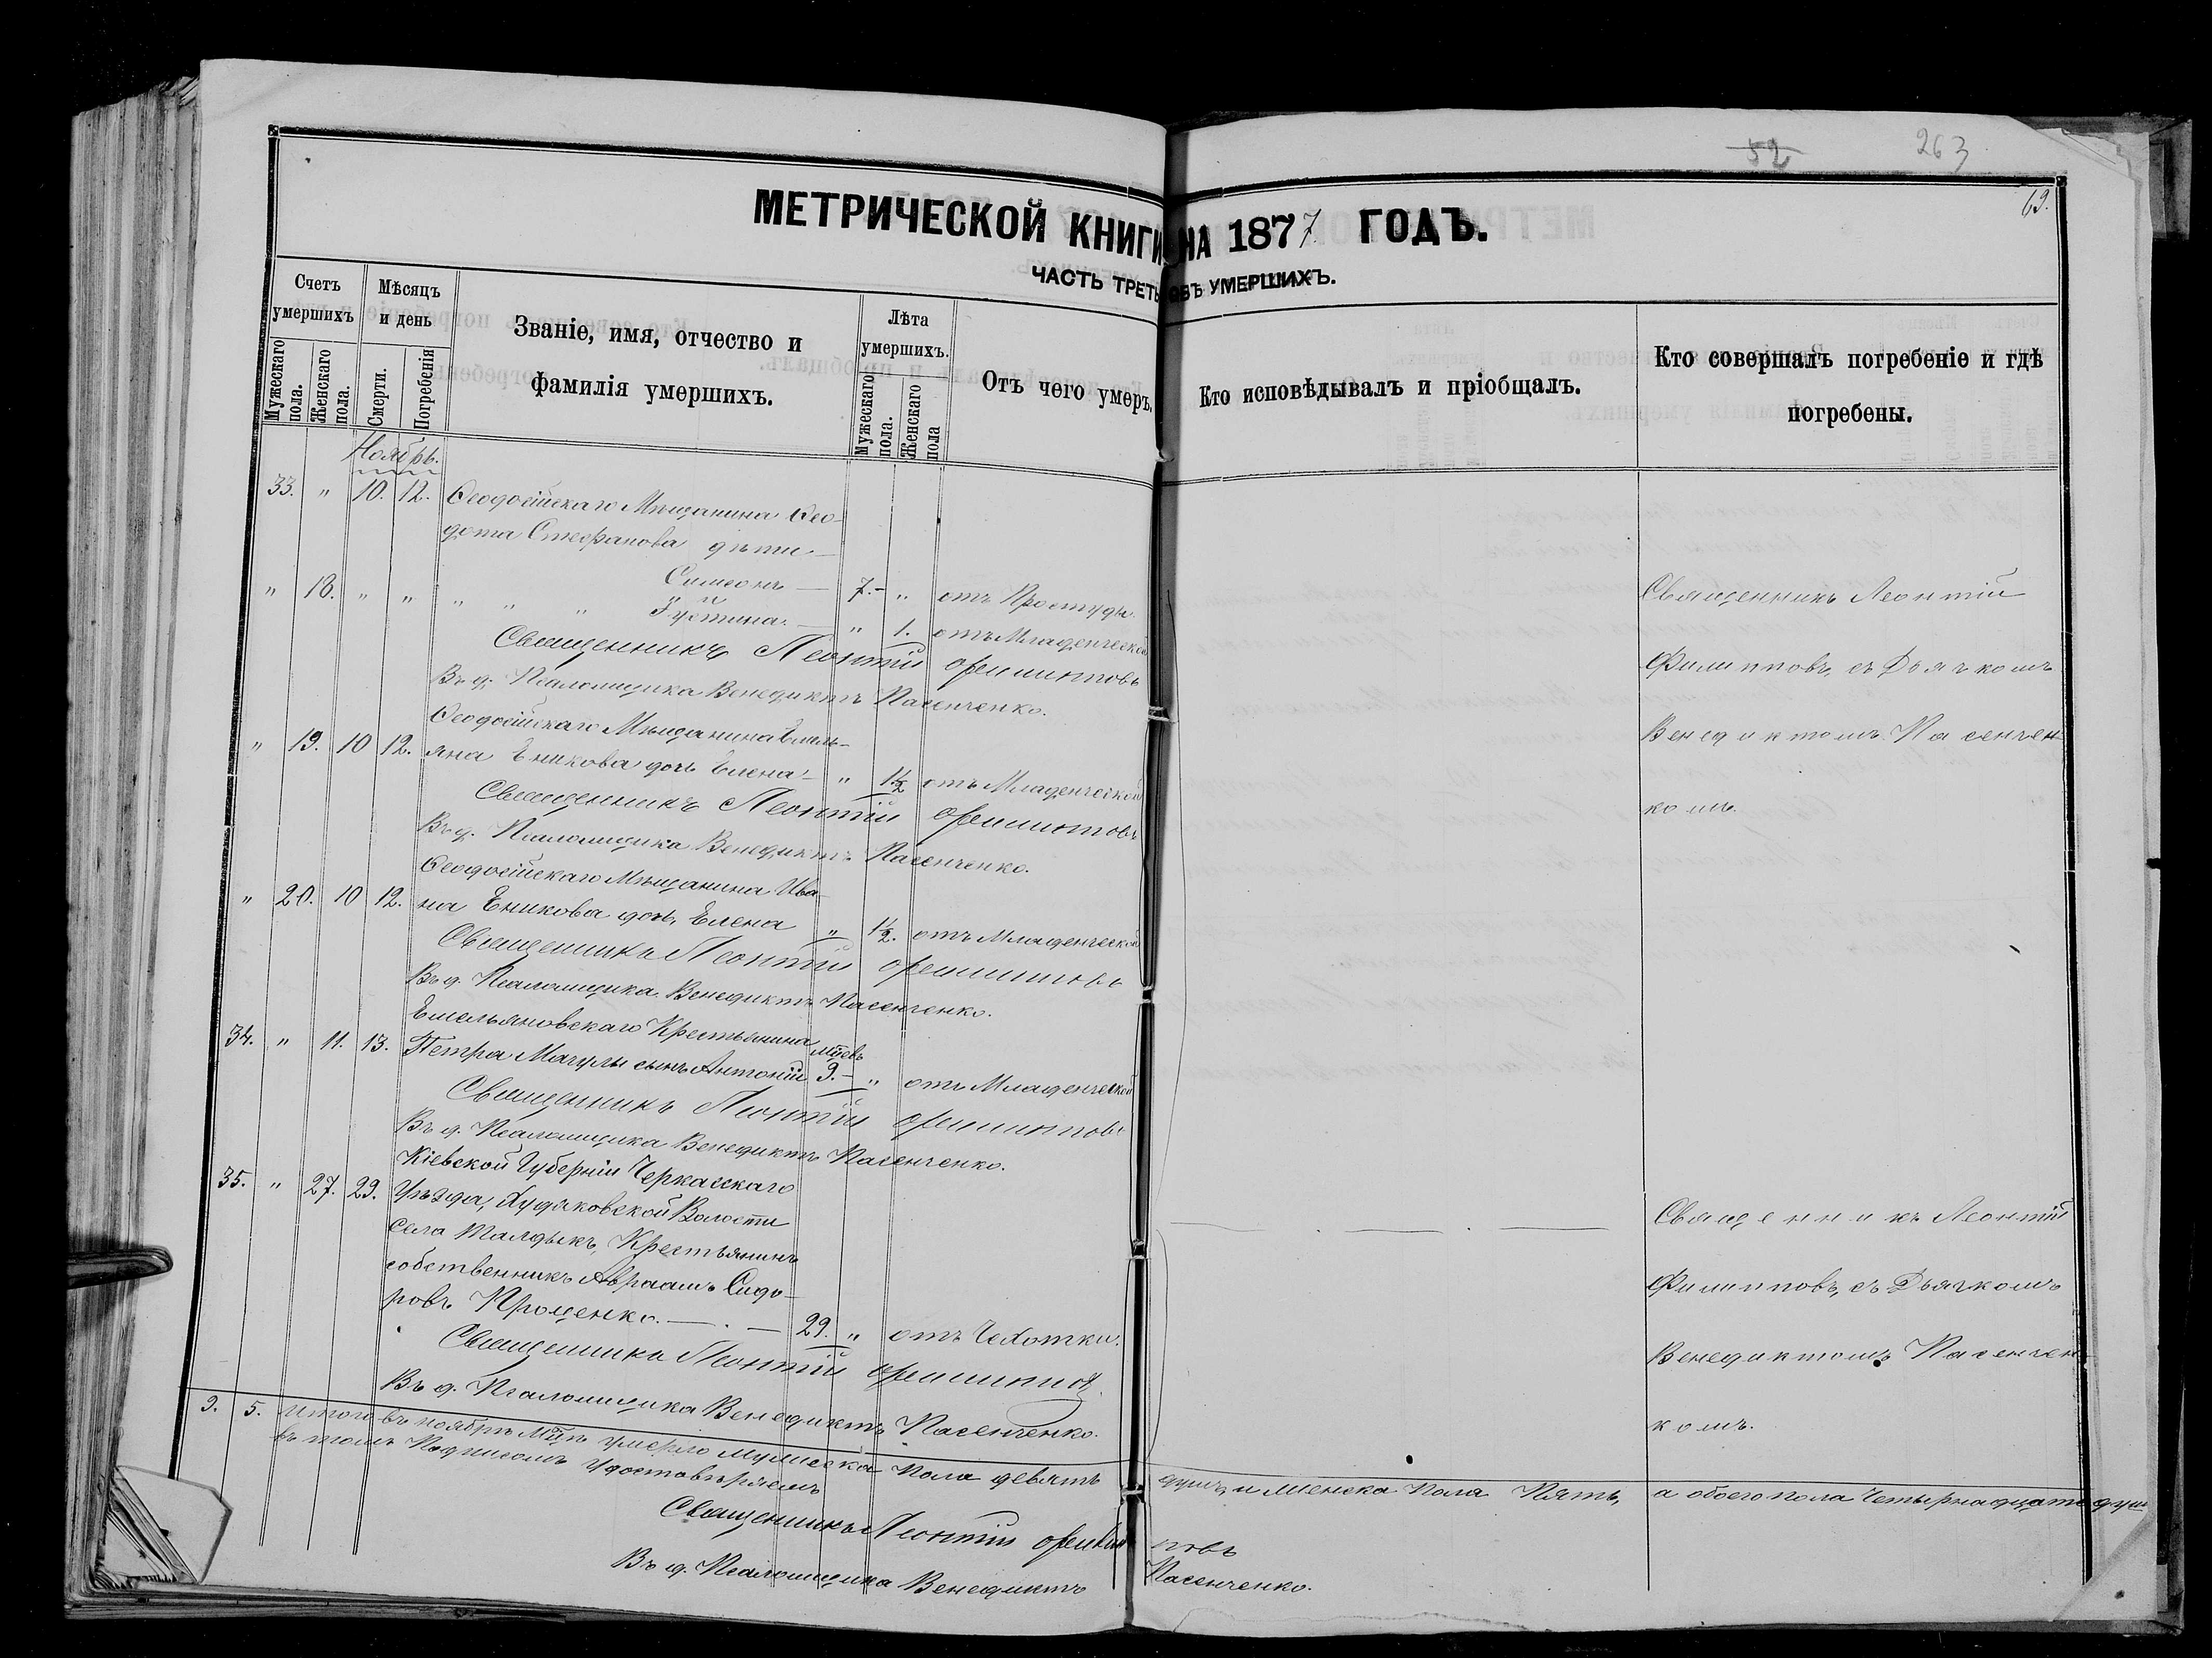 52 263
69.
МЕТРИЧЕСКОЙ КНИГИ НА 1877 ГОДЪ.
ЧАСТЬ ТРЕТЬ ОБЪ УМЕРШИХЪ.
Счетъ умершихъ
Мужескаго пола.
Женскаго пола.
Мѣсяцъ и день
Смерти.
Погребенія
Званіе, имя, отчество и
фамилія умершихъ.
Лѣта умершихъ.
Мужескаго пола.
Женскаго пола
Отъ чего умеръ.
Кто исповѣдывалъ и пріобщалъ.
Кто совершалъ погребеніе и гдѣ
погребены.
Ноябрь.
33. " 10. 12. Ѳеодосійскаго Мѣщанина Ѳео-
дота Стефанова дѣти
Симеонъ — 7.– " отъ Простуды.
" 18. " " " " " Іустина. — " 1. отъ Младенческой
Священникъ Леонтій Филипповъ
Въ д. Псаломщика Венедиктъ Пасенченко.
Ѳеодосійскаго Мѣщанина Емель-
" 19. 10 12. яна Еникова дочь Елена – " 1½ отъ Младенческой
Священникъ Леонтій Филипповъ
Въ д. Псаломщика Венедиктъ Пасенченко.
Ѳеодосійскаго Мѣщанина Ива-
" 20. 10 12. на Еникова дочь Елена " 1½. отъ Младенческой
Священникъ Леонтій Филипповъ
Въ д. Псаломщика Венедиктъ Пасенченко.
Емельяновскаго Крестьянина мцевъ
34. " 11. 13. Петра Мачулы сынъ Антоній 9.– " отъ Младенческой
Священникъ Леонтій Филипповъ
Въ д. Псаломщика Венедиктъ Пасенченко.
Кіевской Губерніи Черкасскаго
35. " 27. 29. Уѣзда, Худяковской Волости
села Талдыкъ, Крестьянинъ
собственникъ Авраамъ Сидо-
ровъ Проценко. — . — 29. " отъ Чехотки.
Священникъ Леонтій Филипповъ
Въ д. Псаломщика Венедиктъ Пасенченко.
Священникъ Леонтій
Филипповъ, съ Дьячкомъ
Венедиктомъ Пасенчен-
комъ.
Священникъ Леонтій
Филипповъ, съ Дьячкомъ
Венедиктомъ Пасенчен-
комъ.
9. 5. Итого въ ноябрѣ Мцѣ умерло мужеска Пола девять душъ, и женска Пола Пять, а обоего пола Четырнадцать душ
въ томъ Подписомъ Удостовѣряемъ
Священникъ Леонтій Филипповъ
Въ д. Псаломщика Венедиктъ Пасенченко.